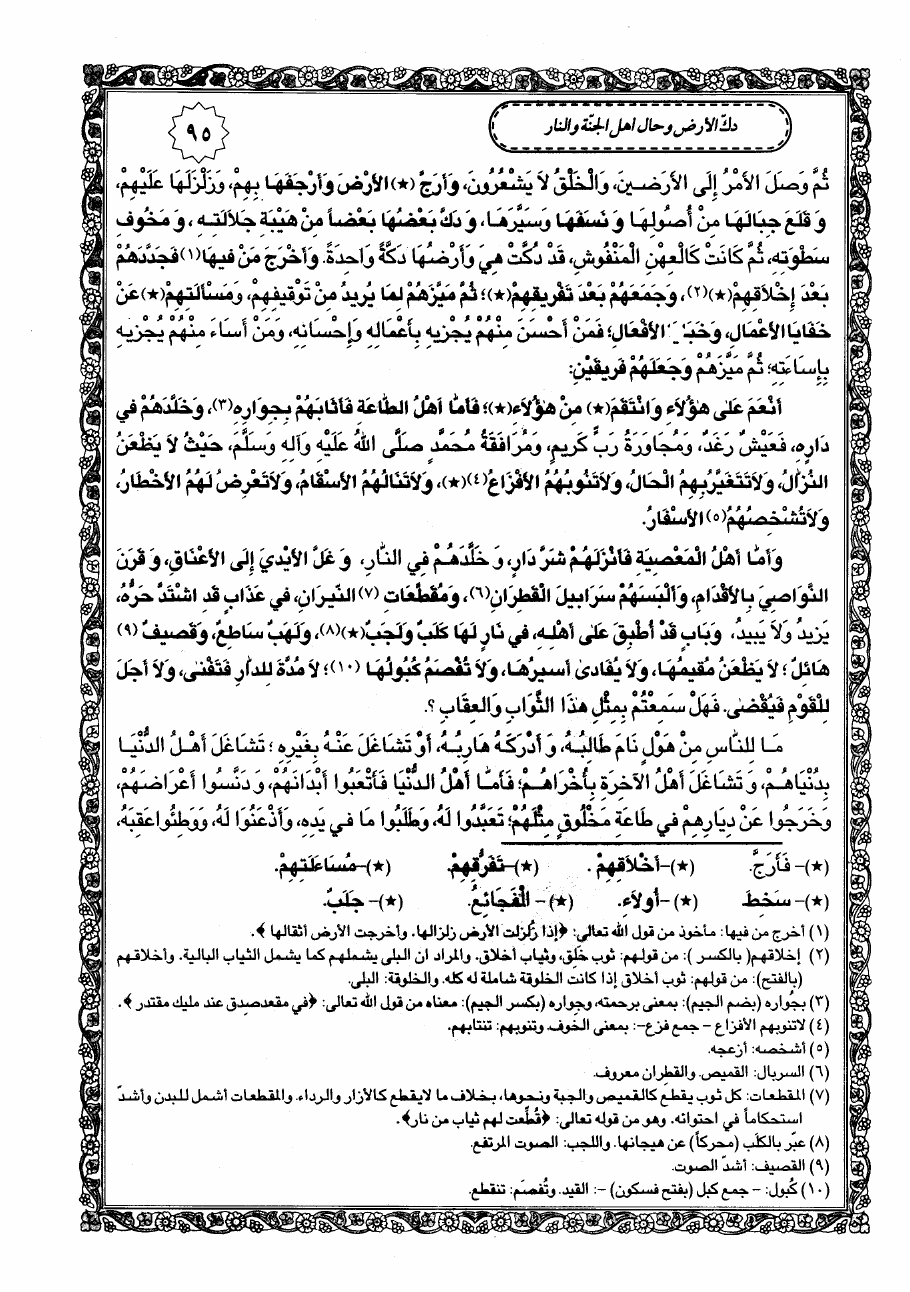 دكّ الأرض وحال أهل الجنّة والنار
٩٥
ثُمَّ وَصَلَ الأَمْرُ إِلَى الأَرَضـينَ، وَالْخَلْقُ لاَ يَشْعُرُونَ، وَأَرَجَّ (★) الأَرْضَ وَأَرْجَفَهَا بِهِمْ، وَزَلْزَلَهَا عَلَيْهِمْ،
وَقَلَعَ جِبَالَهَا مِنْ أُصُولِهَا وَنَسَفَهَا وَسَيَّرَهَا، وَدَكَّ بَعْضُهَا بَعْضاً مِنْ هَيْبَةِ جَلالَتِهِ، وَمَخُوفِ
سَطْوَتِهِ، ثُمَّ كَانَتْ كَالْعِهْنِ الْمَنْفُوشِ، قَدْ دُكَّتْ هِيَ وَأَرْضُهَا دَكَّةً وَاحِدَةً. وَأَخْرَجَ مَنْ فِيهَا(١) فَجَدَّدَهُمْ
بَعْدَ إِخْلاَقِهِمْ(★)(٢)، وَجَمَعَهُمْ بَعْدَ تَفْرِيقِهِمْ(★)؛ ثُمَّ مَيَّزَهُمْ لِمَا يُرِيدُ مِنْ تَوْقِيفِهِمْ، وَمَسْأَلَتِهِمْ(★) عَنْ
خَفَايَا الأَعْمَالِ، الأَفْعَالِ؛ فَمَنْ أَحْسَنَ مِنْهُمْ يُجْزِيهِ بِأَعْمَالِهِ وَإِحْسَانِهِ، وَمَنْ أَسَاءَ مِنْهُمْ يُجْزِيهِ
بِإِسَاءَتِهِ؛ ثُمَّ مَيَّزَهُمْ وَجَعَلَهُمْ فَرِيقَيْنِ:
أَنْعَمَ عَلَى هٰؤُلاَءِ وَانْتَقَمَ(★) مِنْ هٰؤُلاَءِ(★)؛ فَأَمَّا أَهْلُ الطَّاعَةِ فَأَثَابَهُمْ بِجِوَارِهِ(٣)، وَخَلَّدَهُمْ فِي
دَارِهِ، فَعَيْشٌ رَغَدٌ، وَمُجَاوَرَةُ رَبٍّ كَرِيمٍ، وَمُرَافَقَةُ مُحَمَّدٍ صَلَّى اللهُ عَلَيْهِ وَآلِهِ وَسَلَّمَ، حَيْثُ لاَ يَظْعَنُ
النُّزَّالُ، وَلاَ تَتَغَيَّرُ بِهِمُ الْحَالُ، وَلاَ تَنُوبُهُمُ الأَفْزَاعُ(٤)(★)، وَلاَ تَنَالُهُمُ الأَسْقَامُ، وَلاَ تَعْرِضُ لَهُمُ الأَخْطَارُ،
وَلاَ تُشْخِصُهُمُ(٥) الأَسْفَارُ.
وَأَمَّا أَهْلُ الْمَعْصِيَةِ فَأَنْزَلَهُمْ شَرَّ دَارٍ، وَخَلَّدَهُمْ فِي النَّارِ، وَغَلَّ الأَيْدِيَ إِلَى الأَعْنَاقِ، وَقَرَنَ
النَّوَاصِيَ بِالأَقْدَامِ، وَأَلْبَسَهُمْ سَرَابِيلَ الْقَطِرَانِ(٦)، وَمُقَطَّعَاتِ (٧) النِّيرَانِ، فِي عَذَابٍ قَدِ اشْتَدَّ حَرُّهُ،
يَزِيدُ وَلاَ يَبِيدُ، وَبَابٍ قَدْ أُطْبِقَ عَلَى أَهْلِهِ، فِي نَارٍ لَهَا كَلَبٌ وَلَجَبٌ(★)(٨)، وَلَهَبٌ سَاطِعٌ، وَقَصِيفٌ (٩)
هَائِلٌ؛ لاَ يَظْعَنُ مُقِيمُهَا، وَلاَ يُفَادَى أَسِيرُهَا، وَلاَ تُفْصَمُ كُبُولُهَا (١٠)؛ لاَ مُدَّةَ لِلدَّارِ فَتَفْنَى، وَلاَ أَجَلَ
لِلْقَوْمِ فَيُقْضَى. فَهَلْ سَمِعْتُمْ بِمِثْلِ هٰذَا الثَّوَابِ وَالْعِقَابِ؟.
مَا لِلنَّاسِ مِنْ هَوْلٍ نَامَ طَالِبُهُ، وَأَدْرَكَهُ هَارِبُهُ، أَوْ تَشَاغَلَ عَنْهُ بِغَيْرِهِ؛ تَشَاغَلَ أَهْلُ الدُّنْيَا
بِدُنْيَاهُمْ، وَتَشَاغَلَ أَهْلُ الآخِرَةِ بِأُخْرَاهُمْ؛ فَأَمَّا أَهْلُ الدُّنْيَا فَأَتْعَبُوا أَبْدَانَهُمْ، وَدَنَّسُوا أَعْرَاضَهُمْ،
وَخَرَجُوا عَنْ دِيَارِهِمْ فِي طَاعَةِ مَخْلُوقٍ مِثْلِهِمْ؛ تَعَبَّدُوا لَهُ، وَطَلَبُوا مَا فِي يَدِهِ، وَأَذْعَنُوا لَهُ، وَوَطِئُوا عَقِبَهُ،
(★)- فَأَرَجَّ. (★)-أَخْلاَقِهِمْ. (★)-تَفَرُّقِهِمْ. (★)-مُسَاءَلَتِهِمْ.
(★)- سَخِطَ (★)-أُولاَءِ. (★)- الْفَجَائِعُ. (★)- جَلَبٌ.
(١) أخرج من فيها: مأخوذ من قول الله تعالى: ﴿إذا زُلزلت الأرض زلزالها. وأخرجت الأرض أثقالها﴾.
(٢) إخلاقهم( بالكسر ): من قولهم: ثوب خَلَق، وثياب أخلاق. والمراد ان البلى يشملهم كما يشمل الثياب البالية. وأخلاقهم
(بالفتح): من قولهم: ثوب أخلاق إذا كانت الخلوقة شاملة له كله. والخلوقة: البلى.
(٣) بجُواره (بضم الجيم): بمعنى برحمته، وجِواره (بكسر الجيم): معناه من قول الله تعالى: ﴿في مقعد صدق عند مليك مقتدر﴾.
(٤) لاتنوبهم الأفزاع - جمع فزع-: بمعنى الخوف، وتنوبهم: تنتابهم.
(٥) أشخصه: أزعجه.
(٦) السربال: القميص. والقطران معروف.
(٧) المقطعات: كل ثوب يقطع كالقميص والجبة ونحوها، بخلاف ما لايقطع كالأزار والرداء. والمقطعات أشمل للبدن وأشدّ
استحكاماً في احتوائه. وهو من قوله تعالى: ﴿قُطِّعت لهم ثياب من نار﴾.
(٨) عبّر بالكلَب (محركاً) عن هيجانها. واللجب: الصوت المرتفع.
(٩) القصيف: أشدّ الصوت.
(١٠) كُبول: - جمع كبل (بفتح فسكون) -: القيد. وتُفصَم: تنقطع.